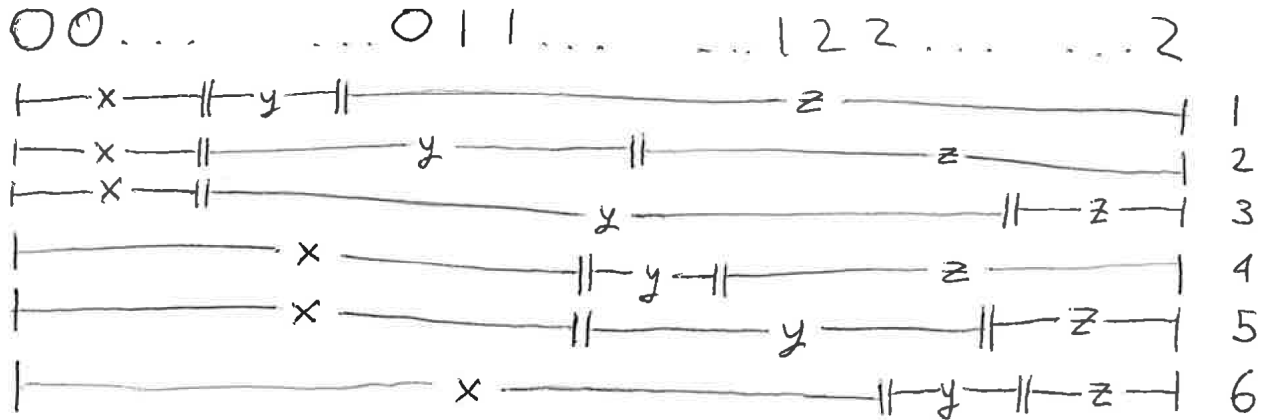 00... ...011... ...122... ...2
x y z 1
x y z 2
x y z 3
x y z 4
x y z 5
x y z 6